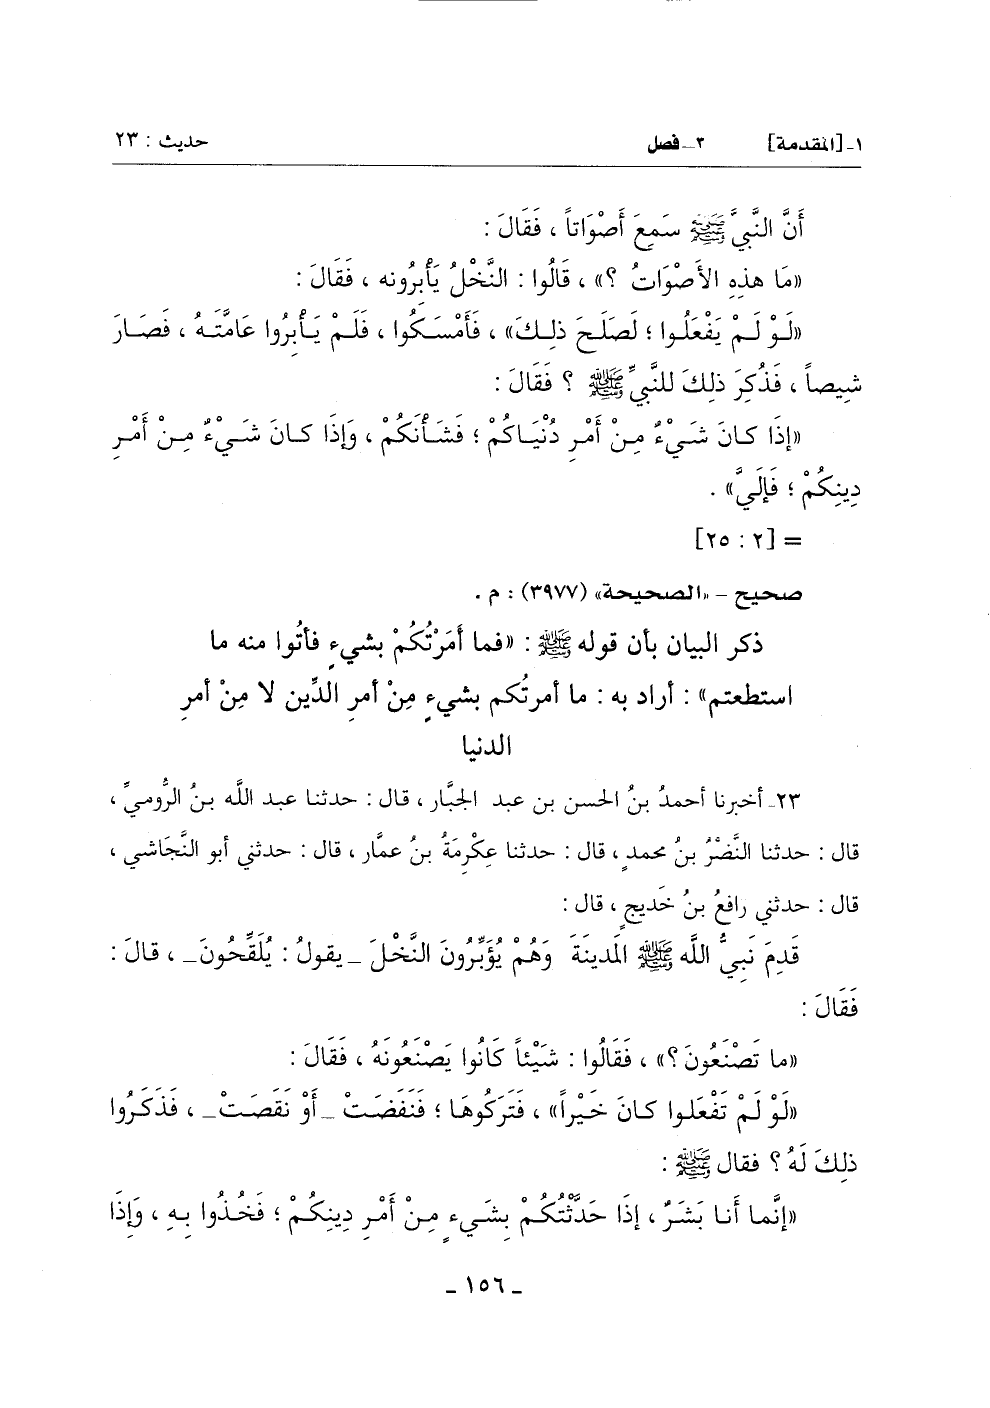 ١-[المقدمة] ٢-فصل حديث : ٢٣
أَنَّ النَّبِيَّ ﷺ سَمِعَ أَصْوَاتاً ، فَقَالَ :
«مَا هذِهِ الأَصْوَاتُ ؟» ، قَالُوا : النَّخْلُ يَأْبُرُونه ، فَقَالَ :
«لَوْ لَمْ يَفْعَلُوا ؛ لَصَلَحَ ذلِكَ» ، فَأَمْسَكُوا ، فَلَمْ يَأْبُرُوا عَامَّتَهُ ، فَصَارَ
شيصاً ، فَذُكِرَ ذلِكَ للنَّبِيِّ ﷺ ؟ فَقَالَ :
«إذَا كانَ شَيْءٌ مِنْ أَمْرِ دُنْيَاكُمْ ؛ فَشَأْنَكُمْ ، وَإذَا كانَ شَيْءٌ مِنْ أَمْرِ
دِينِكُمْ ؛ فَإلَيَّ» .
= [٢ : ٢٥]
صحيح - «الصحيحة» (٣٩٧٧) : م .
ذكر البيان بأن قوله ﷺ : «فما أَمَرْتُكُمْ بشيءٍ فأتُوا منه ما
استطعتم» : أراد به : ما أمرتُكم بشيءٍ مِنْ أمرِ الدِّين لا مِنْ أمرِ
الدنيا
٢٣- أخبرنا أحمدُ بنُ الحسن بن عبد الجبَّار ، قال : حدثنا عبد اللَّه بنُ الرُّوميِّ ،
قال : حدثنا النَّضْرُ بنُ محمدٍ ، قال : حدثنا عِكْرِمَةُ بنُ عمَّار ، قال : حدثني أبو النَّجَاشي ،
قال : حدثني رافعُ بنُ خَديجٍ ، قال :
قَدِمَ نَبِيُّ اللَّه ﷺ المَدينةَ وَهُمْ يُؤَبِّرُونَ النَّخْلَ _ يقولُ : يُلَقِّحُونَ _ ، قالَ :
فَقَالَ :
«ما تَصْنَعُونَ ؟» ، فَقَالُوا : شَيْئاً كَانُوا يَصْنَعُونَهُ ، فَقَالَ :
«لَوْ لَمْ تَفْعَلوا كانَ خَيْراً» ، فَتَرَكُوهَا ؛ فَنَفَضَتْ _ أَوْ نَقَصَتْ _ ، فَذَكَرُوا
ذلِكَ لَهُ ؟ فقال ﷺ :
«إنَّما أَنا بَشَرٌ ، إذَا حَدَّثْتُكُمْ بِشَيءٍ مِنْ أَمْرِ دِينِكُمْ ؛ فَخُذُوا بِهِ ، وَإذَا
_ ١٥٦ _